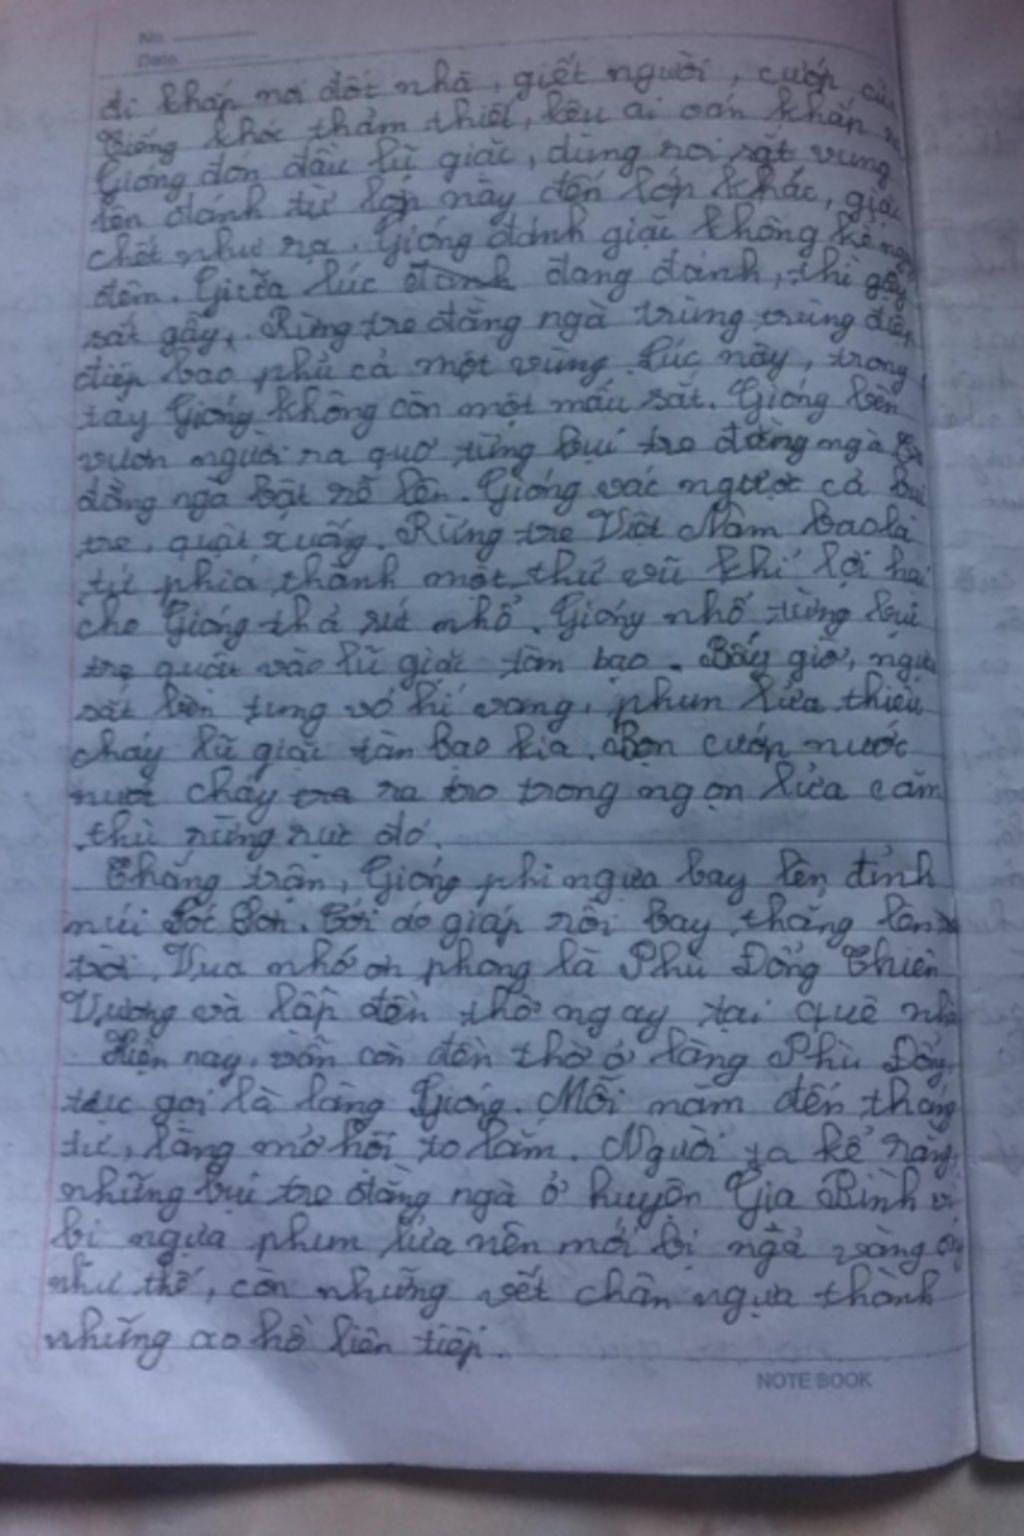 No.
Date.
đi khắp nơi đốt nhà, giết người, cướp của
Tiếng khóc thảm thiết, kêu ai oán khắp
Gióng đón đầu lũ giặc, dùng roi sắt vung
lên đánh từ lớp này đến lớp khác, giặc
chết như rạ. Gióng đánh giặc không kể ngày
đêm. Giữa lúc đánh đang đánh, thì gậy
sắt gãy. Rừng tre đằng ngà trùng trùng điệp
điệp bao phủ cả một vùng. Lúc này, trong
tay Gióng không còn một mẩu sắt. Gióng bèn
vươn người ra quơ từng bụi tre đằng ngà
đằng ngà bật rễ lên. Gióng vác ngược cả bụi
tre, quật xuống. Rừng tre Việt Nam bao la
tứ phía thành một thứ vũ khí lợi hại
cho Gióng thả sứt nhổ. Gióng nhổ từng bụi
tre quất vào lũ giặc tàn bạo. Bấy giờ, ngựa
sắt bèn tung vó hí vang, phun lửa thiêu
cháy lũ giặc tàn bạo kia. Bọn cướp nước
nước cháy tra ra tro trong ngọn lửa căm
thù rừng rực đó.
Thắng trận, Gióng phi ngựa bay lên đỉnh
núi Sóc Sơn. Cởi áo giáp rồi bay thẳng lên
trời. Vua nhớ ơn phong là Phù Đổng Thiên
Vương và lập đền thờ ngay tại quê nhà
Hiện nay, vẫn còn đền thờ ở làng Phù Đổng,
tục gọi là làng Gióng. Mỗi năm đến tháng
tư, làng mở hội to lắm. Người ta kể rằng,
những bụi tre đằng ngà ở huyện Gia Bình vì
bị ngựa phun lửa nên mới bị ngả vàng óng
như thế, còn những vết chân ngựa thành
những ao hồ liên tiếp.
NOTE BOOK